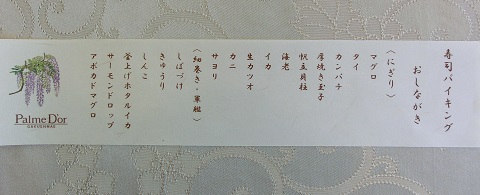 寿司バイキング
おしながき
〈にぎり〉
マグロ
タイ
カンパチ
厚焼き玉子
帆立貝柱
海老
イカ
生カツオ
カニ
サヨリ
〈細巻き・軍艦〉
しばづけ
きゅうり
しんこ
釜上げホタルイカ
サーモンドロップ
アボカドマグロ
Palme D'or